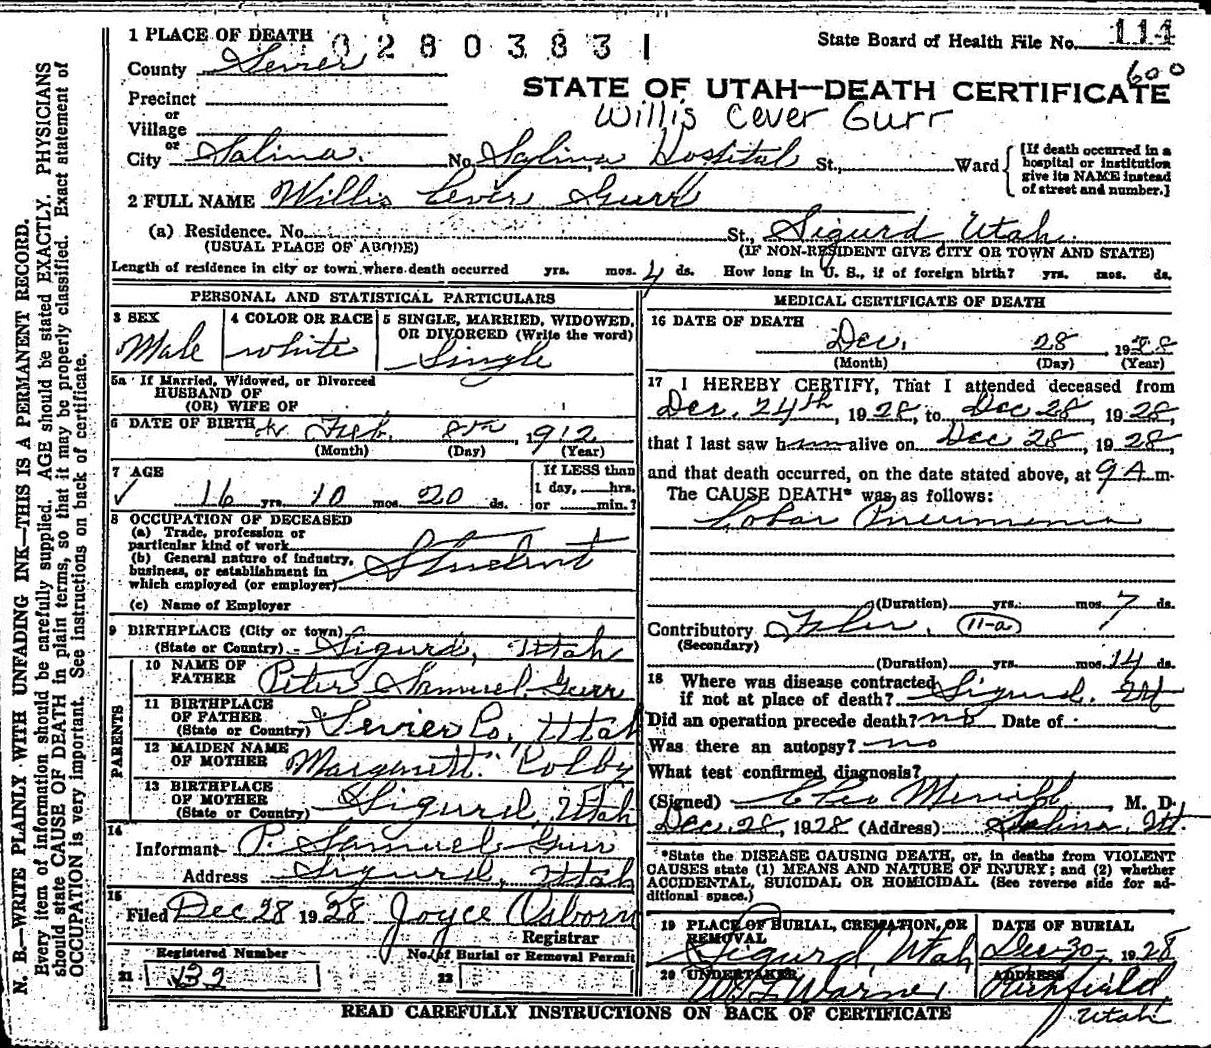 1 PLACE OF DEATH 0 2 8 0 3 8 3 1
State Board of Health File No. 114
County Sevier
600
STATE OF UTAH—DEATH CERTIFICATE
Precinct
Willis Cever Gurr
or
Village
or
City Salina. No. Salina Hospital St., Ward
[If death occurred in a
hospital or institution
give its NAME instead
of street and number.]
2 FULL NAME Willis Cever Gurr
(a) Residence. No. St., Sigurd Utah.
(USUAL PLACE OF ABODE) (IF NON-RESIDENT GIVE CITY OR TOWN AND STATE)
Length of residence in city or town where death occurred yrs. mos. 4 ds. How long in U. S., if of foreign birth? yrs. mos. ds.
PERSONAL AND STATISTICAL PARTICULARS
3 SEX Male
4 COLOR OR RACE white
5 SINGLE, MARRIED, WIDOWED,
OR DIVORCED (Write the word)
Single
5a If Married, Widowed, or Divorced
HUSBAND OF
(OR) WIFE OF
6 DATE OF BIRTH Feb. 8th, 1912
(Month) (Day) (Year)
7 AGE
16 yrs. 10 mos. 20 ds.
If LESS than
1 day, hrs.
or min.?
8 OCCUPATION OF DECEASED
(a) Trade, profession or
particular kind of work
(b) General nature of industry,
business, or establishment in
which employed (or employer) Student
(c) Name of Employer
9 BIRTHPLACE (City or town)
(State or Country) Sigurd, Utah
PARENTS
10 NAME OF
FATHER Peter Samuel Gurr
11 BIRTHPLACE
OF FATHER
(State or Country) Sevier Co, Utah
12 MAIDEN NAME
OF MOTHER Margarett Colby
13 BIRTHPLACE
OF MOTHER
(State or Country) Sigurd, Utah
14
Informant P. Samuel Gurr
Address Sigurd, Utah
15
Filed Dec 28 1928 Joyce Osborn
Registrar
Registered Number No. of Burial or Removal Permit
21 132 22
MEDICAL CERTIFICATE OF DEATH
16 DATE OF DEATH
Dec. 28, 1928
(Month) (Day) (Year)
17 I HEREBY CERTIFY, That I attended deceased from
Dec. 24th, 1928, to Dec 28, 1928,
that I last saw him alive on Dec 28, 1928,
and that death occurred, on the date stated above, at 9 A m.
The CAUSE DEATH* was as follows:
Lobar Pneumonia
(Duration) yrs. mos. 7 ds.
Contributory 11-a
(Secondary)
(Duration) yrs. mos. 14 ds.
18 Where was disease contracted
if not at place of death? Sigurd. Ut
Did an operation precede death? no Date of
Was there an autopsy? no
What test confirmed diagnosis?
(Signed) M. D.
Dec. 28, 1928 (Address) Salina, Ut.
*State the DISEASE CAUSING DEATH, or, in deaths from VIOLENT
CAUSES state (1) MEANS AND NATURE OF INJURY; and (2) whether
ACCIDENTAL, SUICIDAL OR HOMICIDAL. (See reverse side for ad-
ditional space.)
19 PLACE OF BURIAL, CREMATION, OR
REMOVAL
Sigurd, Utah
DATE OF BURIAL
Dec 30, 1928
20 UNDERTAKER
Warner
ADDRESS
Richfield
Utah
READ CAREFULLY INSTRUCTIONS ON BACK OF CERTIFICATE
N. B.—WRITE PLAINLY WITH UNFADING INK—THIS IS A PERMANENT RECORD.
Every item of information should be carefully supplied. AGE should be stated EXACTLY. PHYSICIANS
should state CAUSE OF DEATH in plain terms, so that it may be properly classified. Exact statement of
OCCUPATION is very important. See instructions on back of certificate.